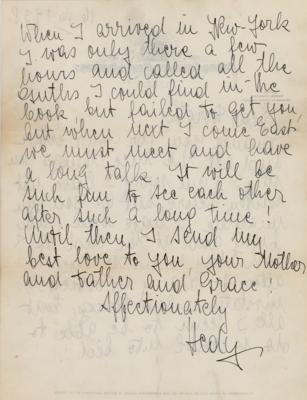 When I arrived in New-York
I was only there a few
hours and called all the
Guths I could find in the
book but failed to get you,
but when next I come East
we must meet and have
a long talk. It will be
such fun to see each other
after such a long time!
Until then, I send my
best love to you, your Mother
and Father and Grace!
Affectionately
Hedy